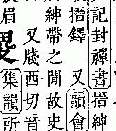 記封禪書搢紳
搢鐸又韻會
紳帶之閒故史
又牋西切音
眉
集韻所